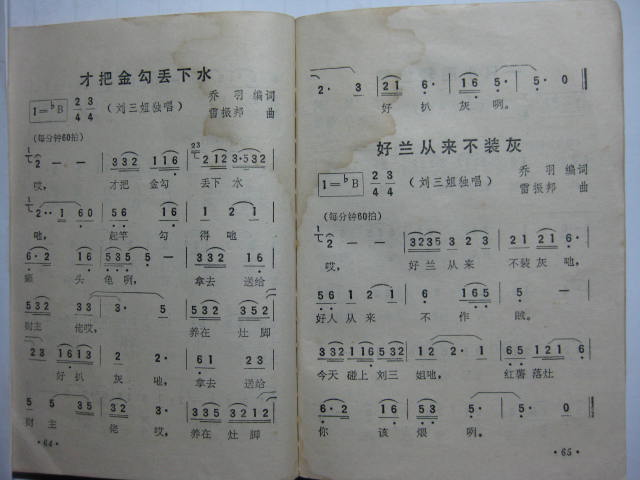 才把金勾丢下水
1=♭B 2/4 3/4 （刘三姐独唱） 乔羽 编词
雷振邦 曲
（每分钟60拍）
2 - - | 332 116 | 212 3·532
哎， 才把 金勾 丢下 水
2·· 1 60 | 56 16· | 1 2 1
吔， 起竿 勾 得吔
6·2 16 | 535 5 - | 332 16
头 龟咧， 拿去 送给
532 332 | 3· 5 | 22 532
财主 佬哎， 养在 灶脚
23 1613 | 2 2· | 61 223
好扒 灰 吔， 拿去 送给
5 5 35 | 32 3· | 22 532 312
财 主 佬 哎， 养在 灶 脚
·64·
2· 3 | 221 6· | 16 5· | 5· 0
好 扒 灰 咧。
好兰从来不装灰
1=♭B 2/4 3/4 （刘三姐独唱） 乔羽 编词
雷振邦 曲
（每分钟60拍）
2 - - | 3235 323 | 21 221 6·
哎， 好兰从来 不装灰吔，
56 121 | 6· 165 | 5 - -
好人从来 不 作 贼。
332 116 532 | 12 2· 1 | 65 121
今天 碰上 刘三 姐吔， 红薯 落灶
6· 2 | 121 6 | 53 5· | 5· 0
你 该 煨 咧。
·65·